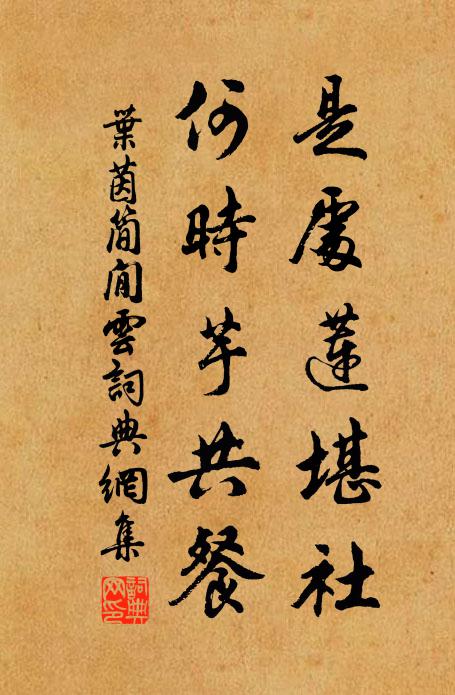 是處蓮堪社
何時芋共餐
葉茵簡閒雲詞典網集
詞典網印